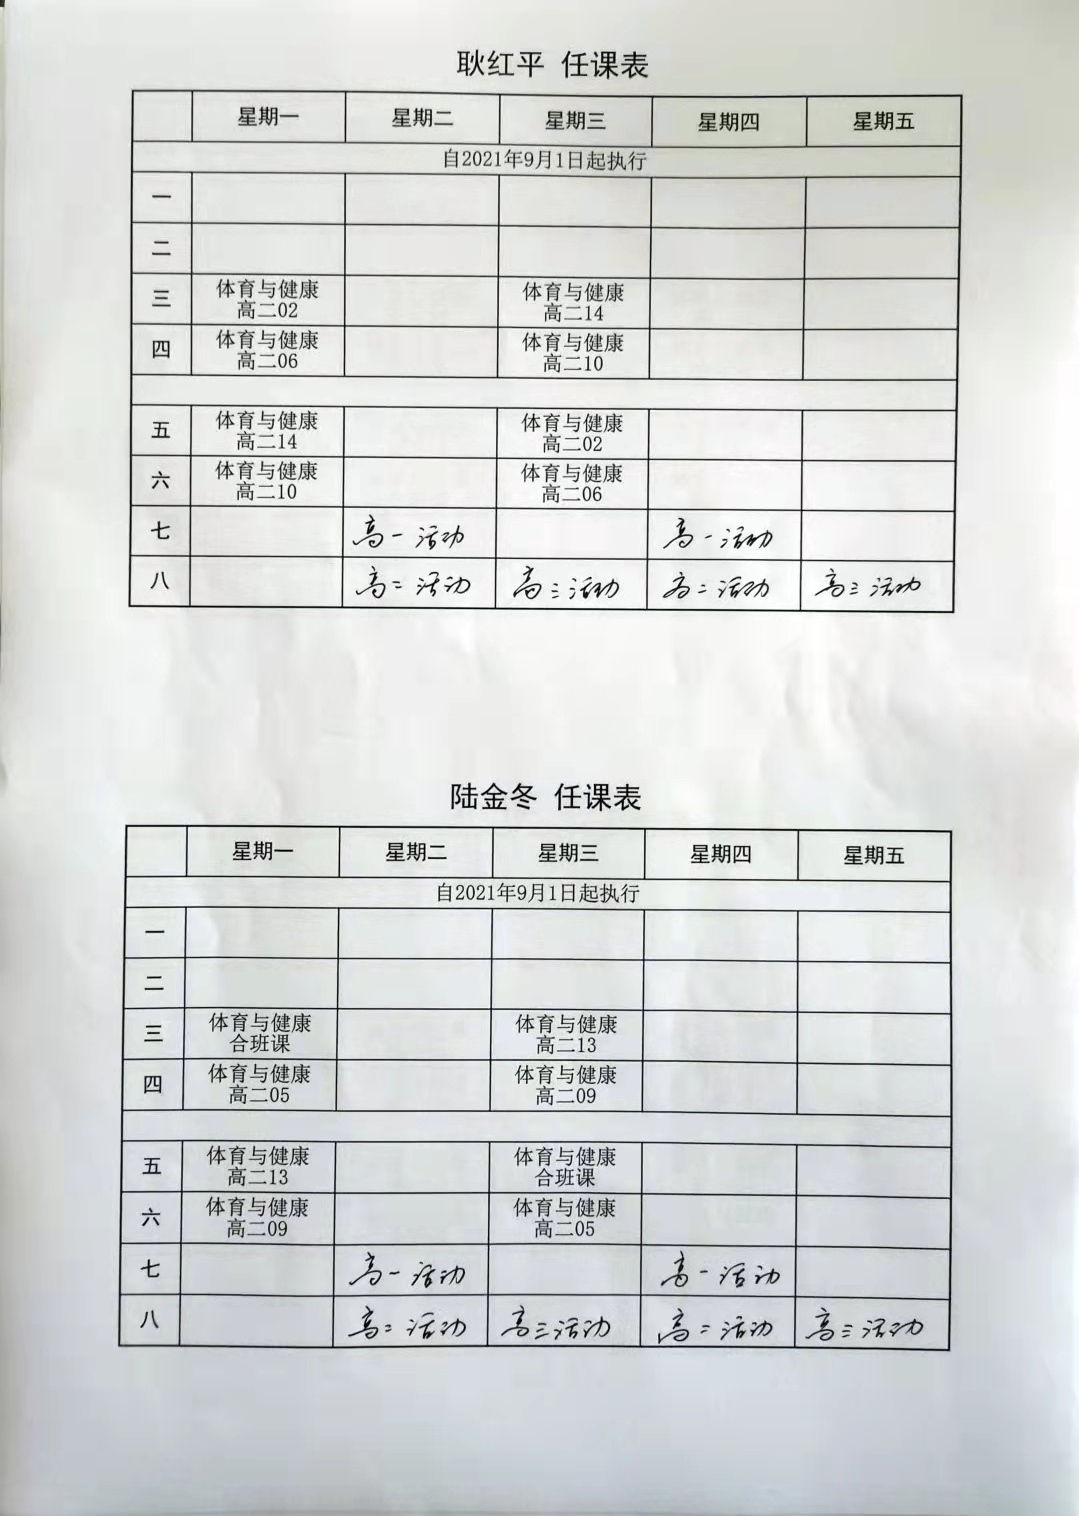 耿红平 任课表
星期一 星期二 星期三 星期四 星期五
自2021年9月1日起执行
一
二
三 体育与健康 体育与健康
高二02 高二14
四 体育与健康 体育与健康
高二06 高二10
五 体育与健康 体育与健康
高二14 高二02
六 体育与健康 体育与健康
高二10 高二06
七 高一活动 高一活动
八 高二活动 高三活动 高二活动 高三活动
陆金冬 任课表
星期一 星期二 星期三 星期四 星期五
自2021年9月1日起执行
一
二
三 体育与健康 体育与健康
合班课 高二13
四 体育与健康 体育与健康
高二05 高二09
五 体育与健康 体育与健康
高二13 合班课
六 体育与健康 体育与健康
高二09 高二05
七 高一活动 高一活动
八 高二活动 高三活动 高二活动 高三活动